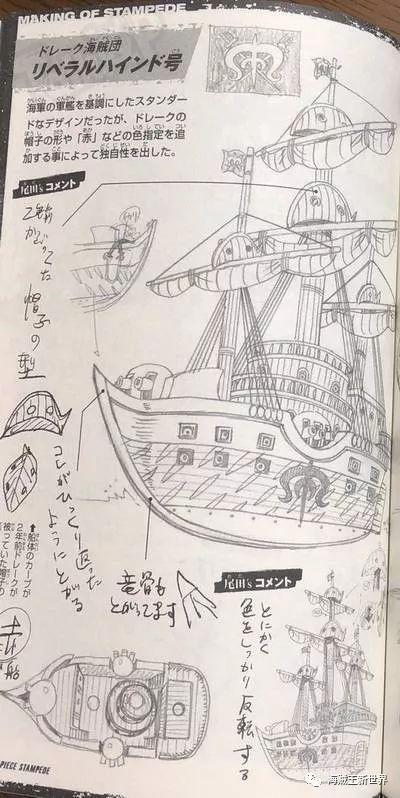 MAKING OF STAMPEDE
ドレーク海賊団
リベラルハインド号
海軍の軍艦を基調にしたスタンダー
ドなデザインだったが、ドレークの
帽子の形や「赤」などの色指定を追
加する事によって独自性を出した。
尾田'sコメント
2年前
かぶってた
帽子の型
コレがひっくり返った
ようにとがる
⬆船体のカーブが
2年前ドレークが
被っていた帽子の
竜骨も
とがってます
尾田'sコメント
とにかく
色をしっかり反転する
赤い船
PIECE STAMPEDE
海贼王新世界